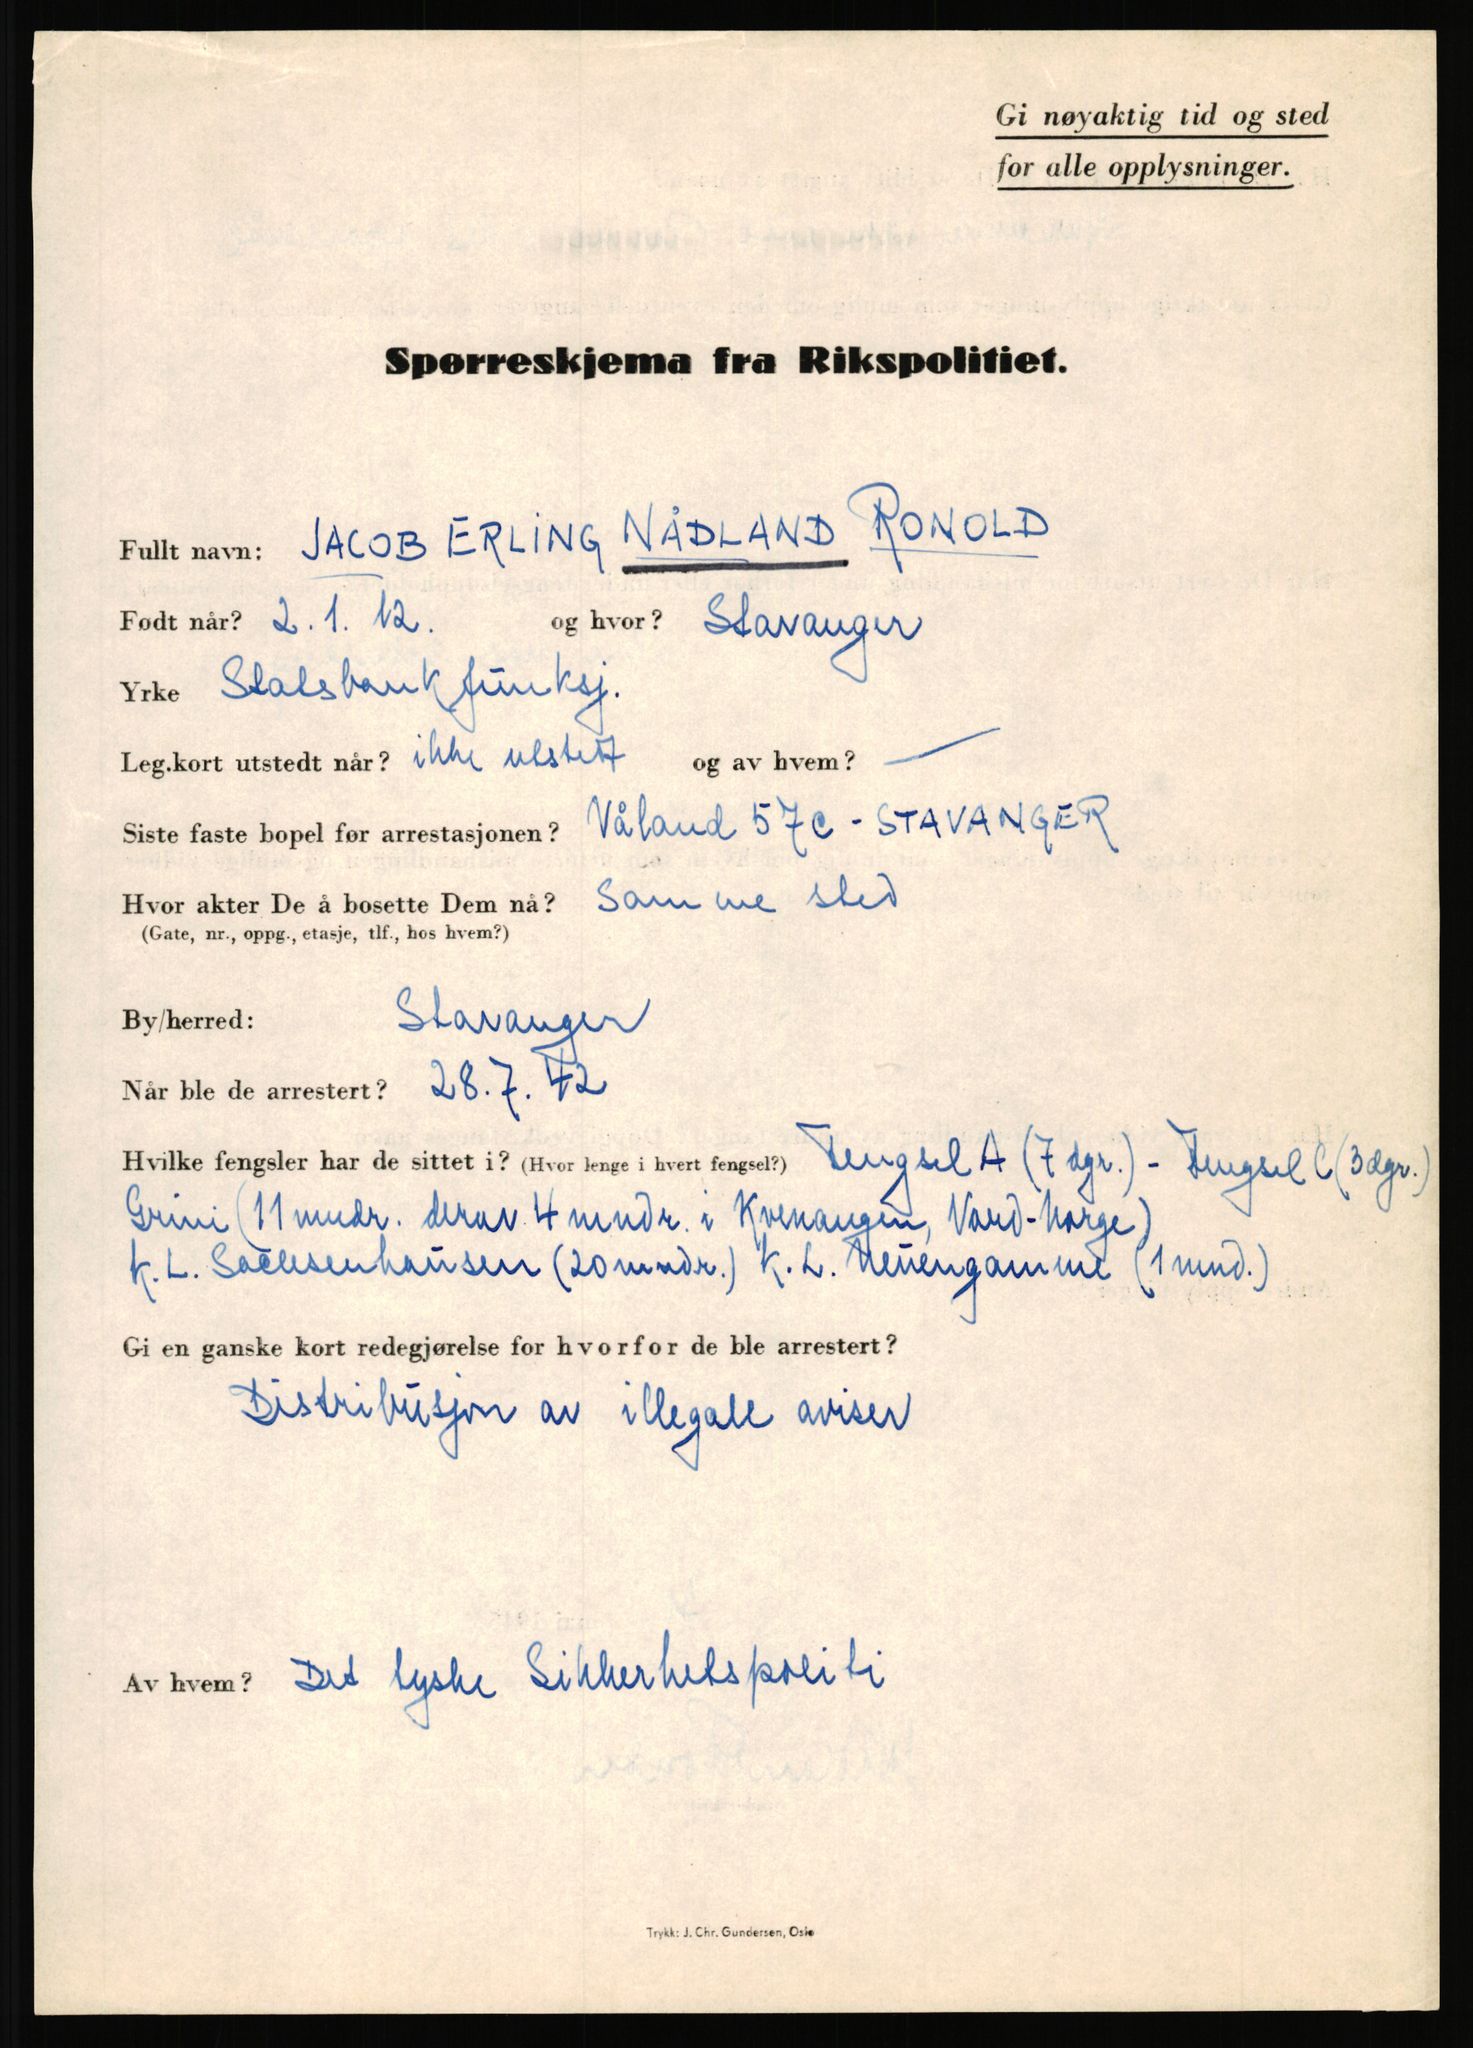 Gi nøyaktig tid og sted
for alle opplysninger.
Spørreskjema fra Rikspolitiet.
Fullt navn: JACOB ERLING NÅDLAND RONOLD
Født når? 2.1.12. og hvor? Stavanger
Yrke Statsbankfunksj.
Leg.kort utstedt når? ikke utstedt og av hvem? —
Siste faste bopel før arrestasjonen? Våland 57c - STAVANGER
Hvor akter De å bosette Dem nå? Samme sted
(Gate, nr., oppg., etasje, tlf., hos hvem?)
By/herred: Stavanger
Når ble de arrestert? 28.7.42
Hvilke fengsler har de sittet i? (Hvor lenge i hvert fengsel?) Fengsel A (7 dgr.) - Fengsel C (3 dgr.)
Grini (11 mndr. derav 4 mndr. i Kvenangen, Nord-Norge)
K. L. Sachsenhausen (20 mndr.) K. L. Neuengamme (1 mnd.)
Gi en ganske kort redegjørelse for hvorfor de ble arrestert?
Distribusjon av illegale aviser
Av hvem? Det tyske Sikkerhetspoliti
Trykk: J. Chr. Gundersen, Oslo